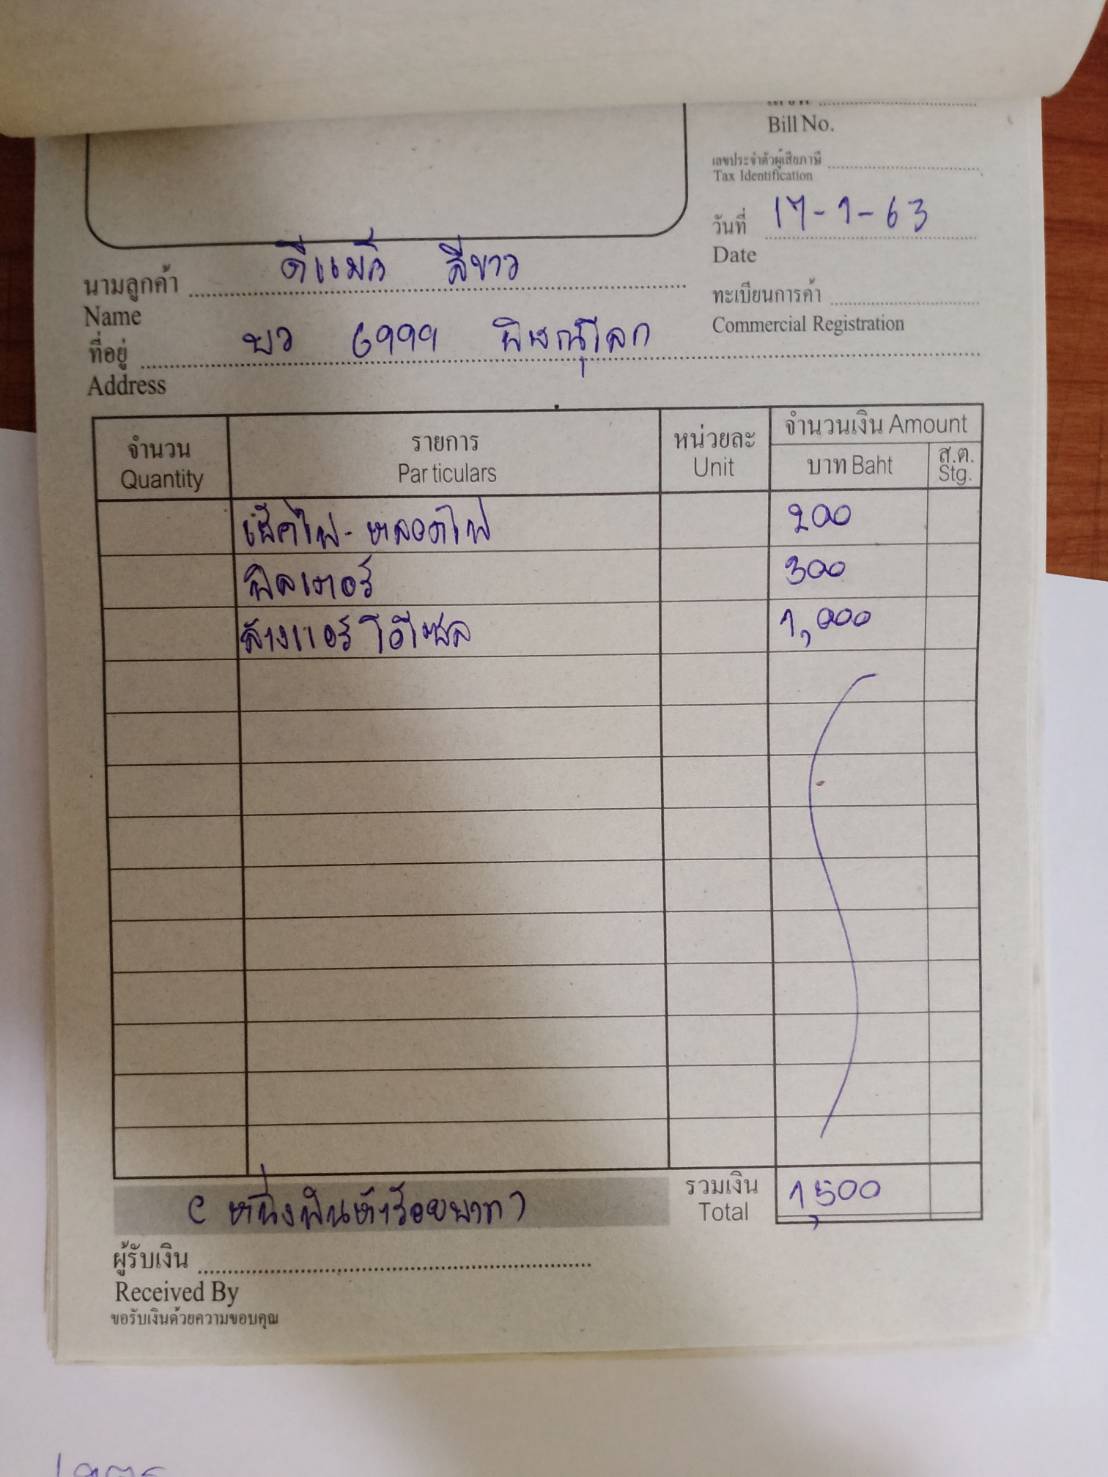 Bill No.
เลขประจำตัวผู้เสียภาษี
Tax Identification
วันที่ 17-1-63
Date
นามลูกค้า ดีแม็ก สีขาว
Name
ทะเบียนการค้า
Commercial Registration
ที่อยู่ 6999 พิษณุโลก
Address
จำนวน รายการ หน่วยละ จำนวนเงิน Amount
Quantity Particulars Unit บาท Baht ส.ต. Stg.
เช็คไฟ - หลอดไฟ 200
ฟิลเตอร์ 300
ล้างแอร์ โอโซล 1,000
(หนึ่งพันห้าร้อยบาท) รวมเงิน 1,500
Total
ผู้รับเงิน
Received By
ขอรับเงินด้วยความขอบคุณ